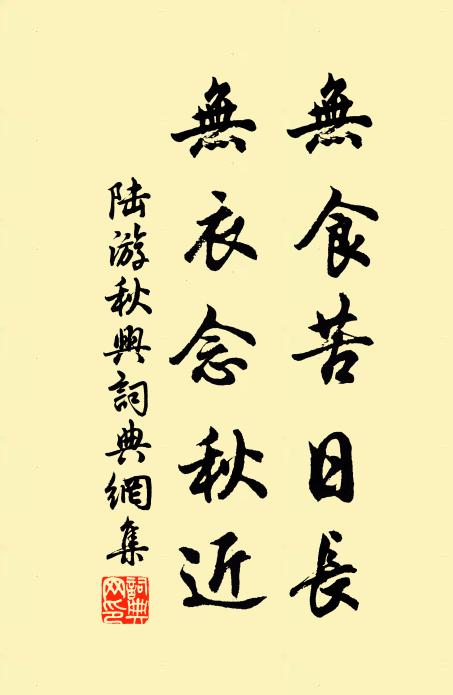 無食苦日長
無衣念秋近
陸游秋興詞典網集
詞典網印